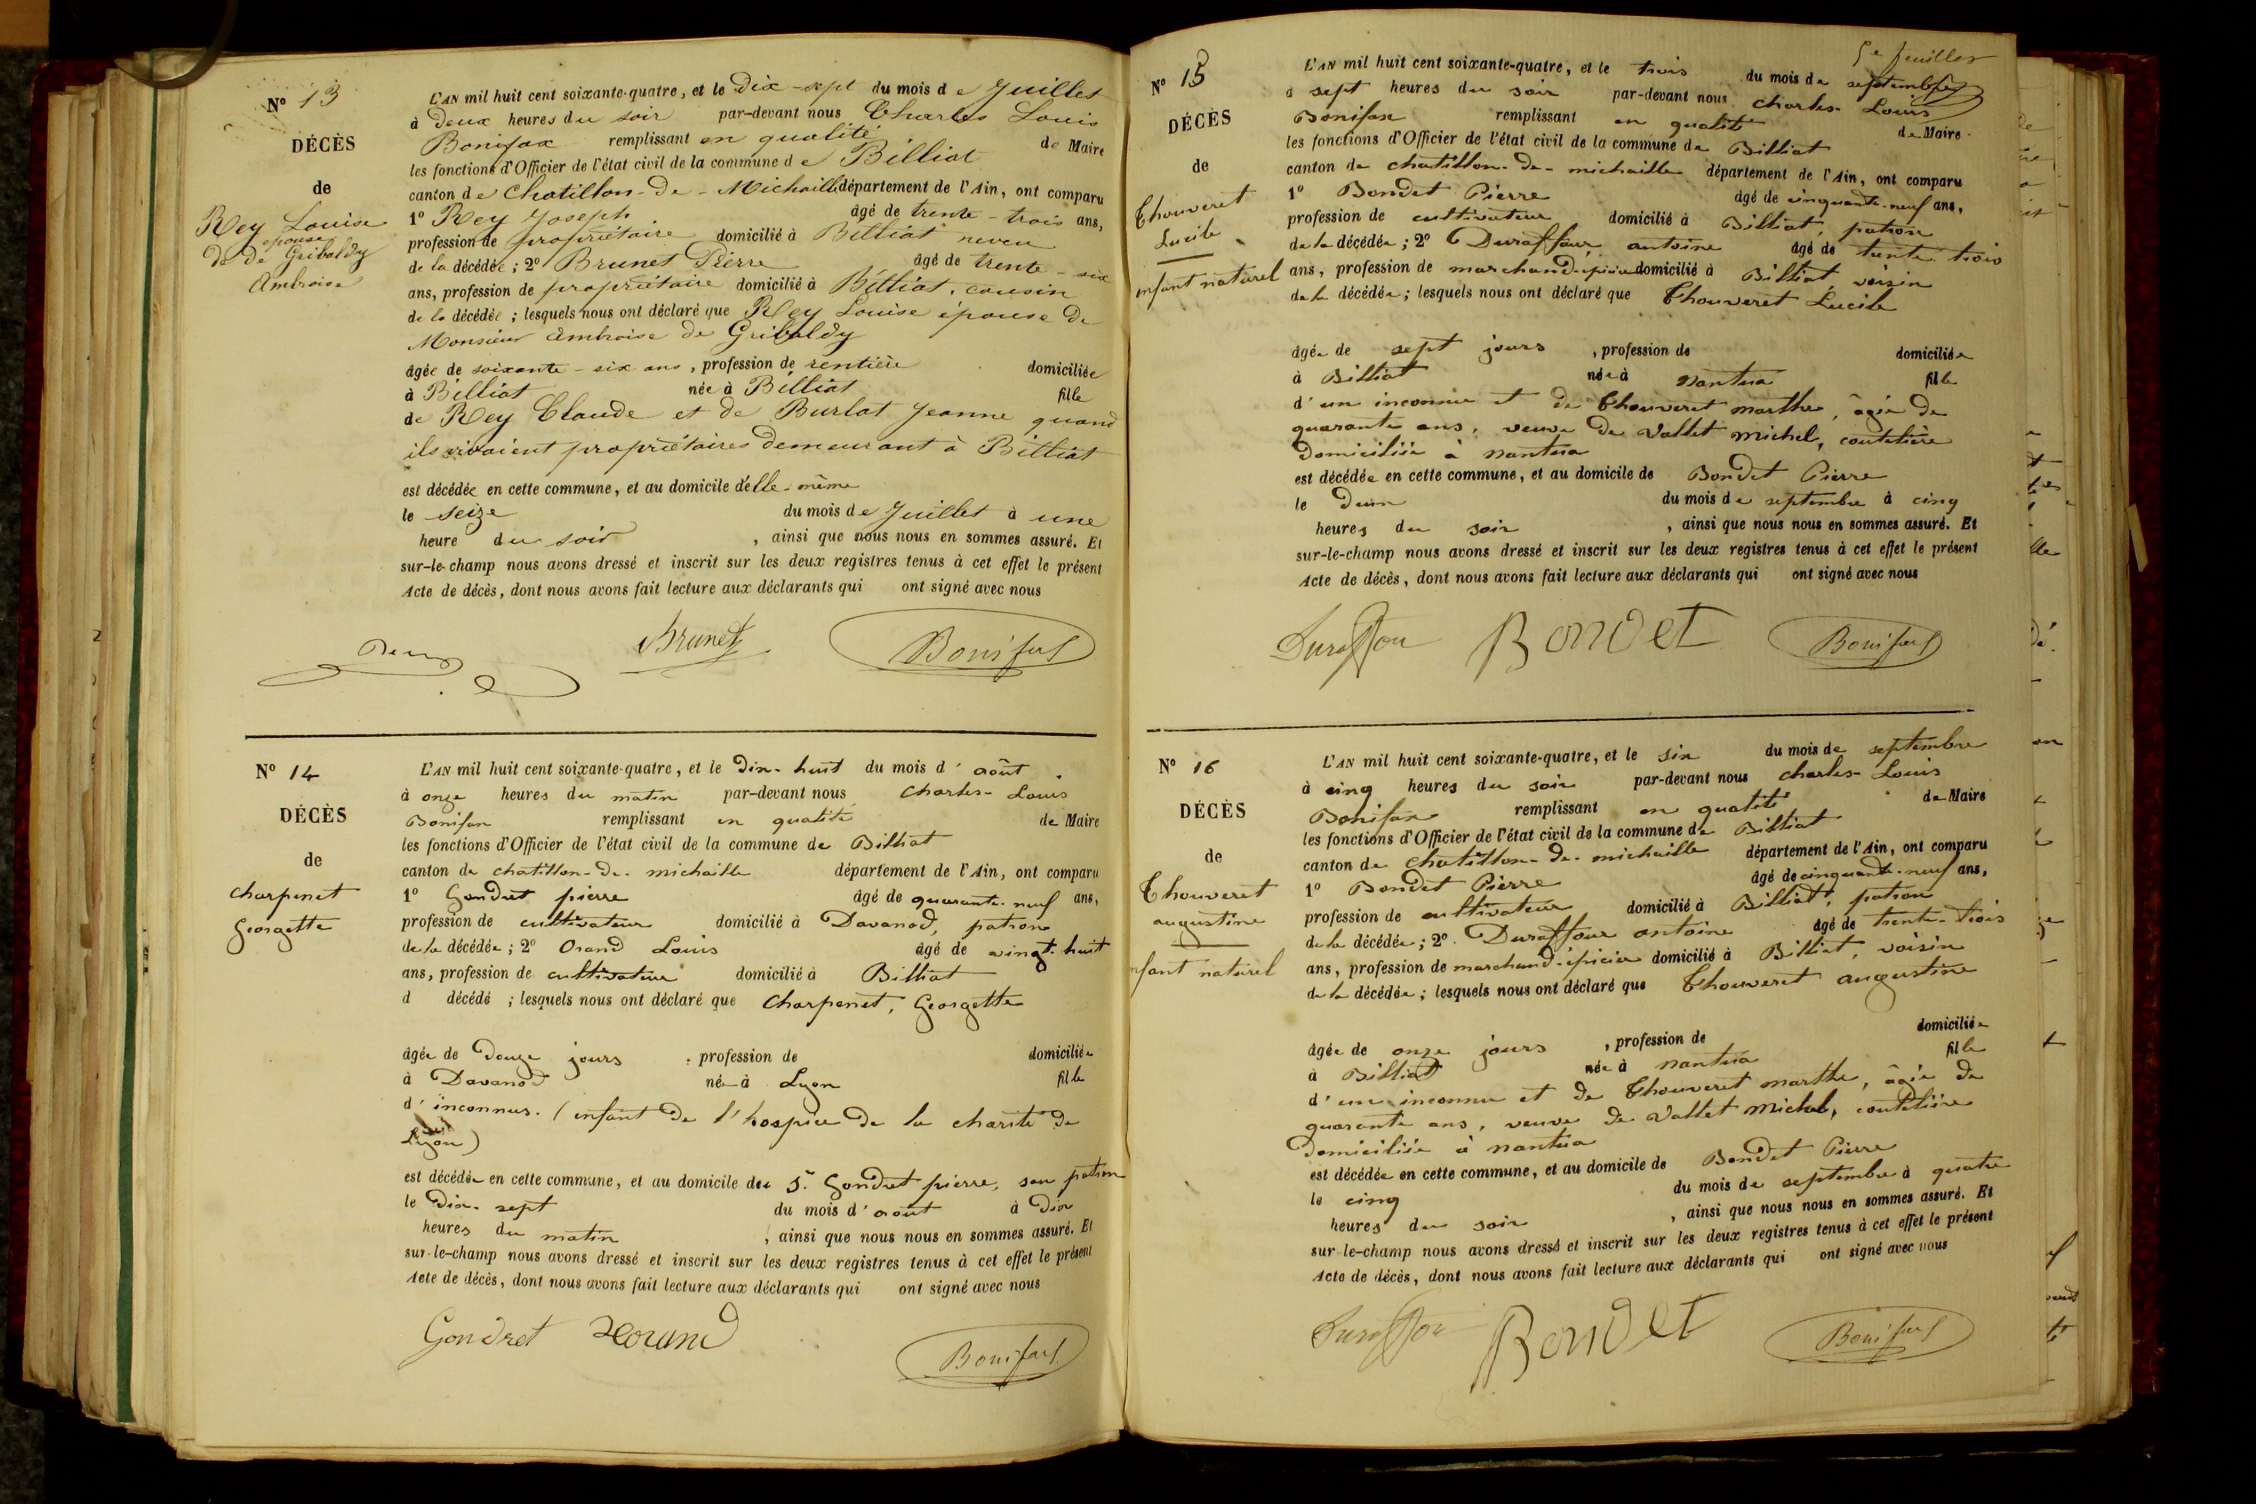 Nº 13
DÉCÈS
de
Rey Louise
épouse
de de Gribaldy
Ambroise
L'AN mil huit cent soixante-quatre, et le Dix-sept du mois de Juillet
à Deux heures du soir par-devant nous Charles Louis
Bonifax remplissant en qualité de Maire
les fonctions d'Officier de l'état civil de la commune de Billiat
canton de Chatillon-de-Michaille département de l'Ain, ont comparu
1º Rey Joseph âgé de trente-trois ans,
profession de propriétaire domicilié à Billiat neveu
de la décédée ; 2º Brunet Pierre âgé de trente-six
ans, profession de propriétaire domicilié à Billiat, cousin
de la décédée ; lesquels nous ont déclaré que Rey Louise épouse de
Monsieur Ambroise de Gribaldy
âgée de soixante-six ans, profession de rentière domiciliée
à Billiat née à Billiat fille
de Rey Claude et de Burlat Jeanne quand
ils vivaient propriétaires demeurant à Billiat
est décédée en cette commune, et au domicile d'elle-même
le seize du mois de Juillet à une
heure du soir, ainsi que nous nous en sommes assuré. Et
sur-le-champ nous avons dressé et inscrit sur les deux registres tenus à cet effet le présent
Acte de décès, dont nous avons fait lecture aux déclarants qui ont signé avec nous
Brunet Bonifax
Nº 14
DÉCÈS
de
Charpenet
Georgette
L'AN mil huit cent soixante-quatre, et le dix-huit du mois d'août
à onze heures du matin par-devant nous Charles-Louis
Bonifax remplissant en qualité de Maire
les fonctions d'Officier de l'état civil de la commune de Billiat
canton de chatillon-de-michaille département de l'Ain, ont comparu
1º Gondret pierre âgé de quarante-neuf ans,
profession de cultivateur domicilié à Davanod, patron
de la décédée ; 2º Orand Louis âgé de vingt-huit
ans, profession de cultivateur domicilié à Billiat
d décédé ; lesquels nous ont déclaré que Charpenet, Georgette
âgée de douze jours, profession de domiciliée
à Davanod née à Lyon fille
d'inconnus. (enfant de l'hospice de la charité de
Lyon)
est décédée en cette commune, et au domicile de S. Gondret pierre, son patron
le dix-sept du mois d'août à dix
heures du matin, ainsi que nous nous en sommes assuré. Et
sur-le-champ nous avons dressé et inscrit sur les deux registres tenus à cet effet le présent
Acte de décès, dont nous avons fait lecture aux déclarants qui ont signé avec nous
Gondret Bonifax
5e feuillet
Nº 15
DÉCÈS
de
Thouveret
Lucile
enfant naturel
L'AN mil huit cent soixante-quatre, et le trois du mois de septembre
à sept heures du soir par-devant nous Charles-Louis
Bonifax remplissant en qualité de Maire
les fonctions d'Officier de l'état civil de la commune de Billiat
canton de chatillon-de-michaille département de l'Ain, ont comparu
1º Bondet Pierre âgé de cinquante-neuf ans,
profession de cultivateur domicilié à Billiat, patron
de la décédée ; 2º Duraffour antoine âgé de trente-trois
ans, profession de marchand-épicier domicilié à Billiat, voisin
de la décédée ; lesquels nous ont déclaré que Thouveret Lucile
âgée de sept jours, profession de domiciliée
à Billiat née à nantua fille
d'un inconnu et de Thouveret marthe, âgée de
quarante ans, veuve de Vallet michel, coutelière
Domiciliée à nantua
est décédée en cette commune, et au domicile de Bondet Pierre
le deux du mois de septembre à cinq
heures du soir, ainsi que nous nous en sommes assuré. Et
sur-le-champ nous avons dressé et inscrit sur les deux registres tenus à cet effet le présent
Acte de décès, dont nous avons fait lecture aux déclarants qui ont signé avec nous
Duraffour Bondet Bonifax
Nº 16
DÉCÈS
de
Thouveret
augustine
enfant naturel
L'AN mil huit cent soixante-quatre, et le six du mois de septembre
à cinq heures du soir par-devant nous Charles-Louis
Bonifax remplissant en qualité de Maire
les fonctions d'Officier de l'état civil de la commune de Billiat
canton de chatillon-de-michaille département de l'Ain, ont comparu
1º Bondet Pierre âgé de cinquante-neuf ans,
profession de cultivateur domicilié à Billiat, patron
de la décédée ; 2º Duraffour antoine âgé de trente-trois
ans, profession de marchand-épicier domicilié à Billiat, voisin
de la décédée ; lesquels nous ont déclaré que Thouveret augustine
âgée de onze jours, profession de domiciliée
à Billiat née à nantua fille
d'un inconnu et de Thouveret marthe, âgée de
quarante ans, veuve de Vallet Michel, coutelière
Domiciliée à nantua
est décédée en cette commune, et au domicile de Bondet Pierre
le cinq du mois de septembre à quatre
heures du soir, ainsi que nous nous en sommes assuré. Et
sur-le-champ nous avons dressé et inscrit sur les deux registres tenus à cet effet le présent
Acte de décès, dont nous avons fait lecture aux déclarants qui ont signé avec nous
Duraffour Bondet Bonifax